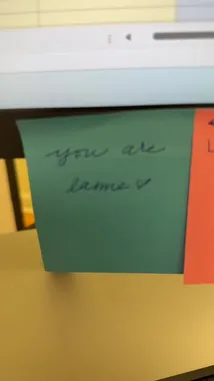 you are
lame ♡
L